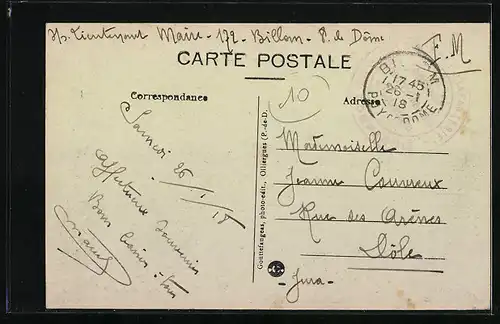 S/Lieutenant Maire - 172 - Billom - P. de Dôme
F.M
CARTE POSTALE
Correspondance
Adresse
10
BILLOM
17 45
26 - 1
18
PUY-DE-DOME
Samedi 26/1/18
Affectueux souvenir
Bons baisers
Gouttefangeas, photo-édit., Olliergues (P.-de-D.)
Mademoiselle
Jeanne Couvreux
Rue des Arènes
Dôle
- Jura -